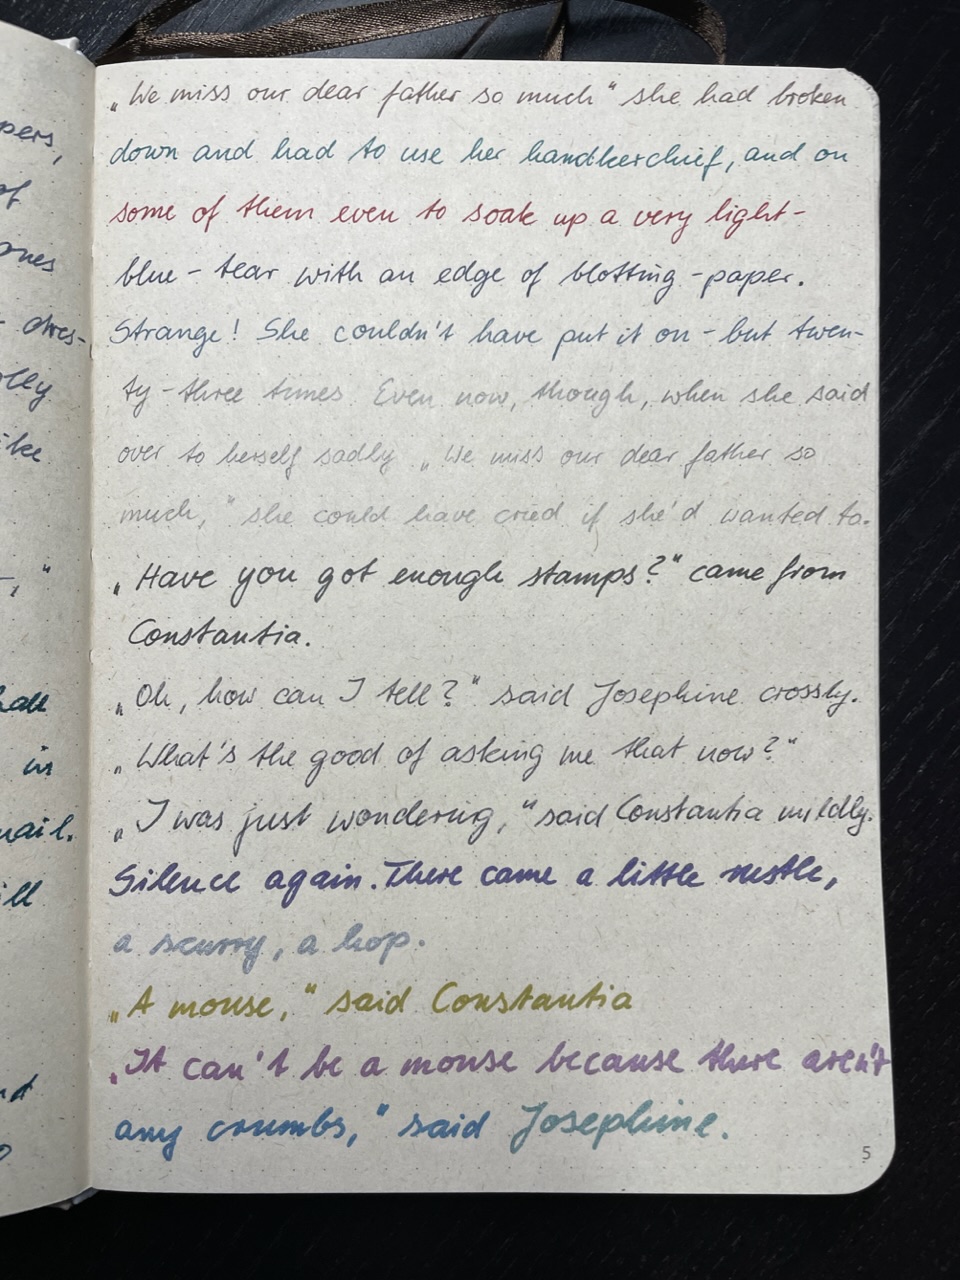 pers,
of
ones
dres-
olly
ike
"
hall
in
mail.
ill
nd
„We miss our dear father so much" she had broken
down and had to use her handkerchief, and on
some of them even to soak up a very light-
blue-tear with an edge of blotting-paper.
Strange! She couldn't have put it on - but twen-
ty-three times. Even now, though, when she said
over to herself sadly „We miss our dear father so
much," she could have cried if she'd wanted to.
„Have you got enough stamps?" came from
Constantia.
„Oh, how can I tell?" said Josephine crossly.
„What's the good of asking me that now?"
„I was just wondering," said Constantia mildly.
Silence again. There came a little rustle,
a scurry, a hop.
„A mouse," said Constantia
„It can't be a mouse because there aren't
any crumbs," said Josephine.
5